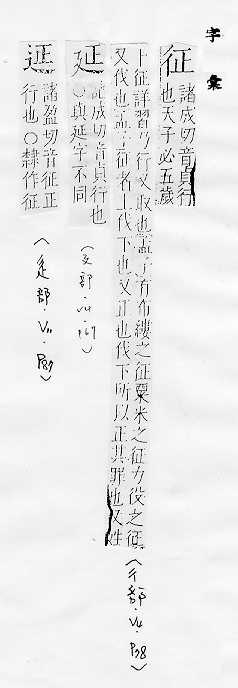 字彙
征
諸成切音貞行
也天子必五歲
卜征詳習乃行又取也孟子有布縷之征粟米之征力役之征
又伐也孟子征者上伐下也又正也伐下所以正其罪也又姓
(彳部·V4·P38)
𢌛
諸成切音貞行也
○與延字不同
(廴部·V4·P67)
諸盈切音征正
行也○隸作征
(辵部·V11·P87)